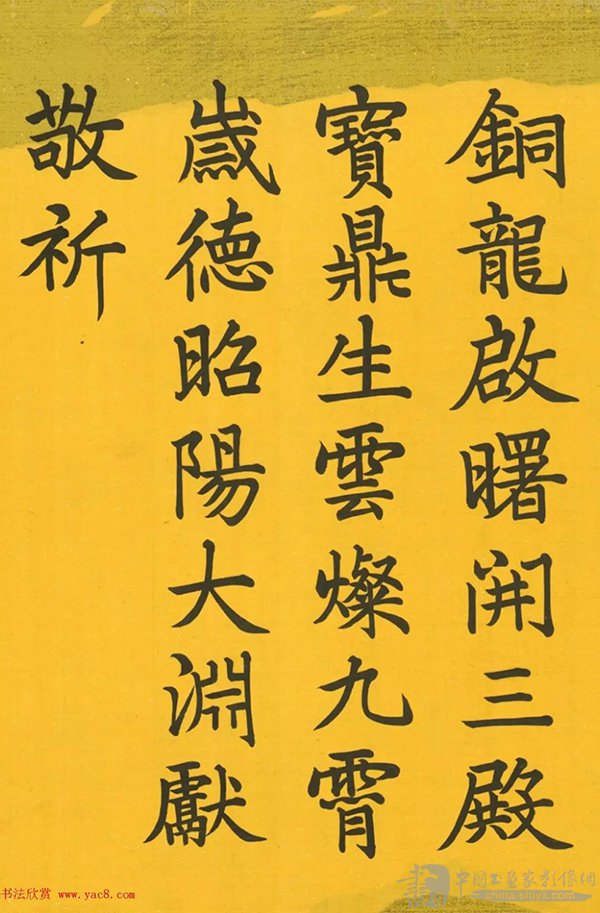 銅龍啟曙開三殿
寶鼎生雲燦九霄
歲德昭陽大淵獻
敬祈
书法欣赏 www.yac8.com
中国书画家影像網
china-shjyx.com